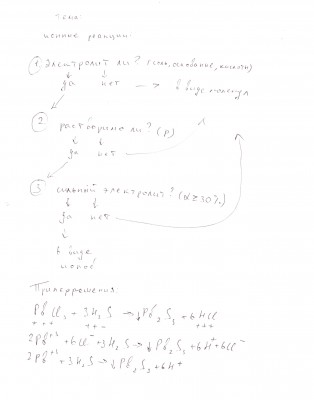 тема:
ионные реакции.
1 Электролит ли? (соли, основания, кислоты)
да нет → в виде молекул
2 растворимо ли? (р)
да нет
3 сильный электролит? (α ≥ 30%)
да нет
в виде
ионов
+++ ++- +++
2Pb⁺³ + 6Cl⁻ + 3H₂S → ↓Pb₂S₃ + 6H⁺ + 6Cl⁻
2Pb⁺³ + 3H₂S → ↓Pb₂S₃ + 6H⁺